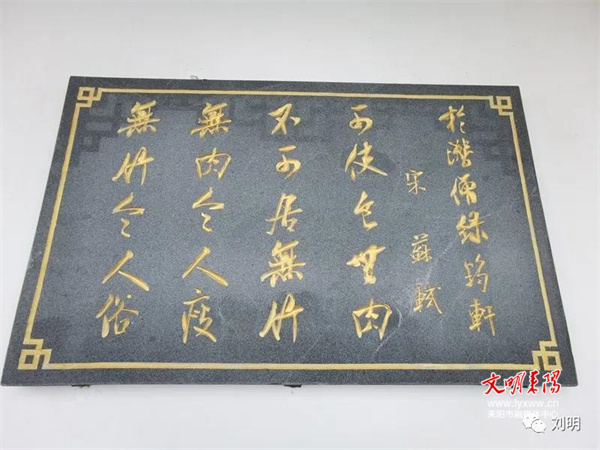 於潛僧綠筠軒
宋 蘇軾
可使食無肉
不可居無竹
無肉令人瘦
無竹令人俗
文明耒陽
www.lyxww.cn
耒阳市融媒体中心
刘明